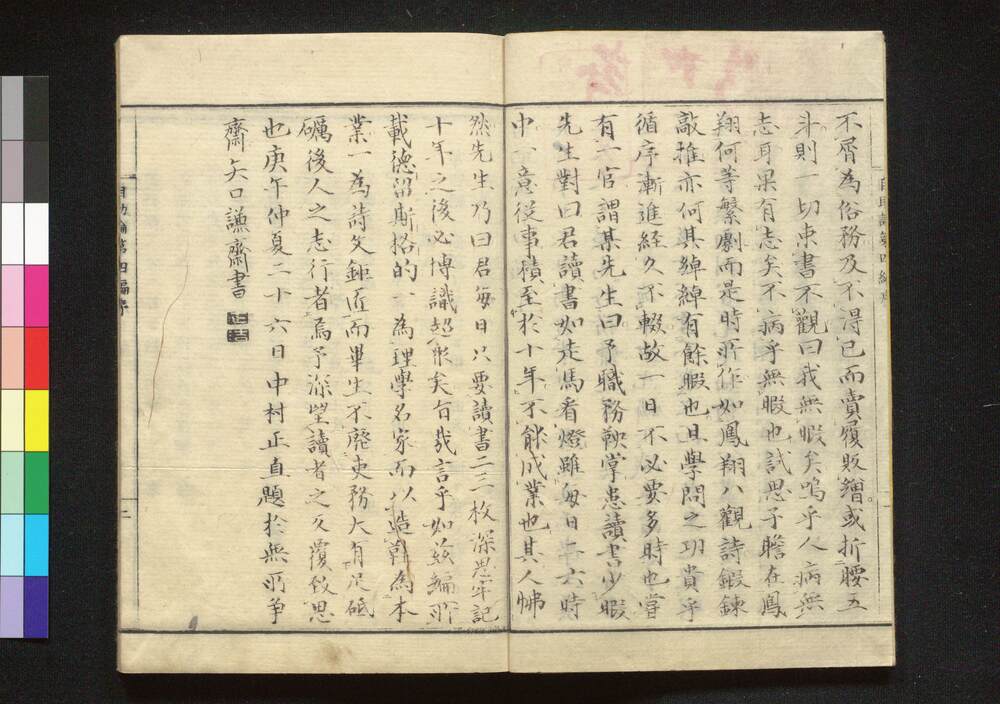 不屑為俗務及不得已而賣履販繒或折腰五
斗則一切束書不觀曰我無暇矣嗚乎人病無
志耳果有志矣不病乎無暇也試思子瞻在鳳
翔何等繁劇而是時所作如鳳翔八觀詩鍛鍊
敲推亦何其綽綽有餘暇也且學問之功貴乎
循序漸進経久不輟故一日不必要多時也嘗
有一官謂某先生曰予職務鞅掌患讀書少暇
先生對曰君讀書如走馬看燈雖每日二六時
中一意從事積至於十年不能成業也其人怫
然先生乃曰君每日只要讀書二三枚深思牢記
十年之後必博識超衆矣旨哉言乎如茲編所
載德留斯招的一為理學名家而以造靴為本
業一為詩文鉅匠而畢生不廢吏務大有足砥
礪後人之志行者焉予深望讀者之久覆致思
也庚午仲夏二十六日中村正直題於無所爭
齋 矢口謙齋書
正直
自助論第四編序